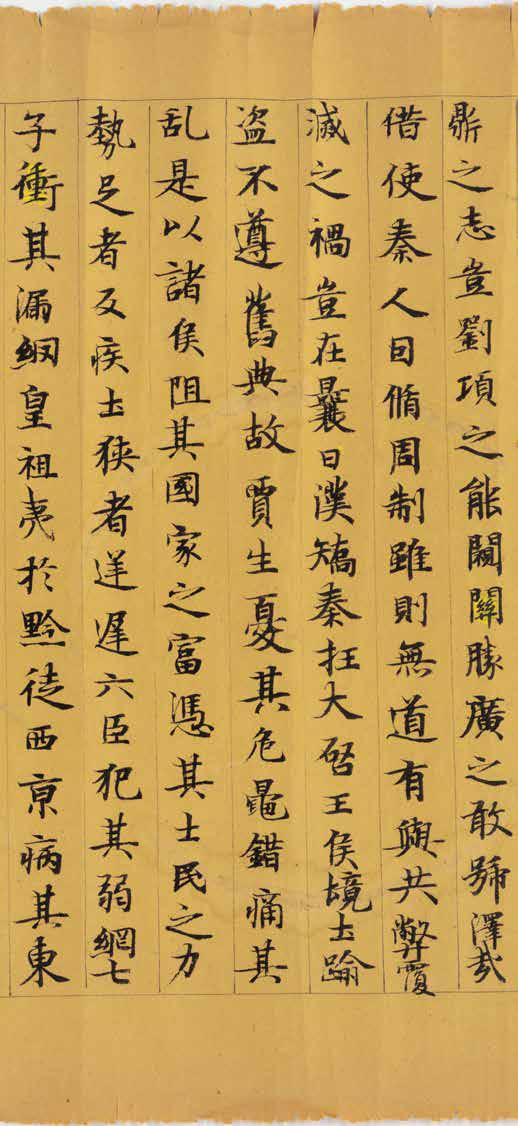 鼎之志豈劉項之能闚關勝廣之敢號澤哉
借使秦人因脩周制雖則無道有與共弊覆
滅之禍豈在曩日漢矯秦枉大啓王侯境土踰
盗不遵舊典故賈生憂其危鼂錯痛其
乱是以諸侯阻其國家之富憑其士民之力
勢足者反疾土狭者逆遲六臣犯其弱網七
子衝其漏網皇祖夷於黥徒西京病其東